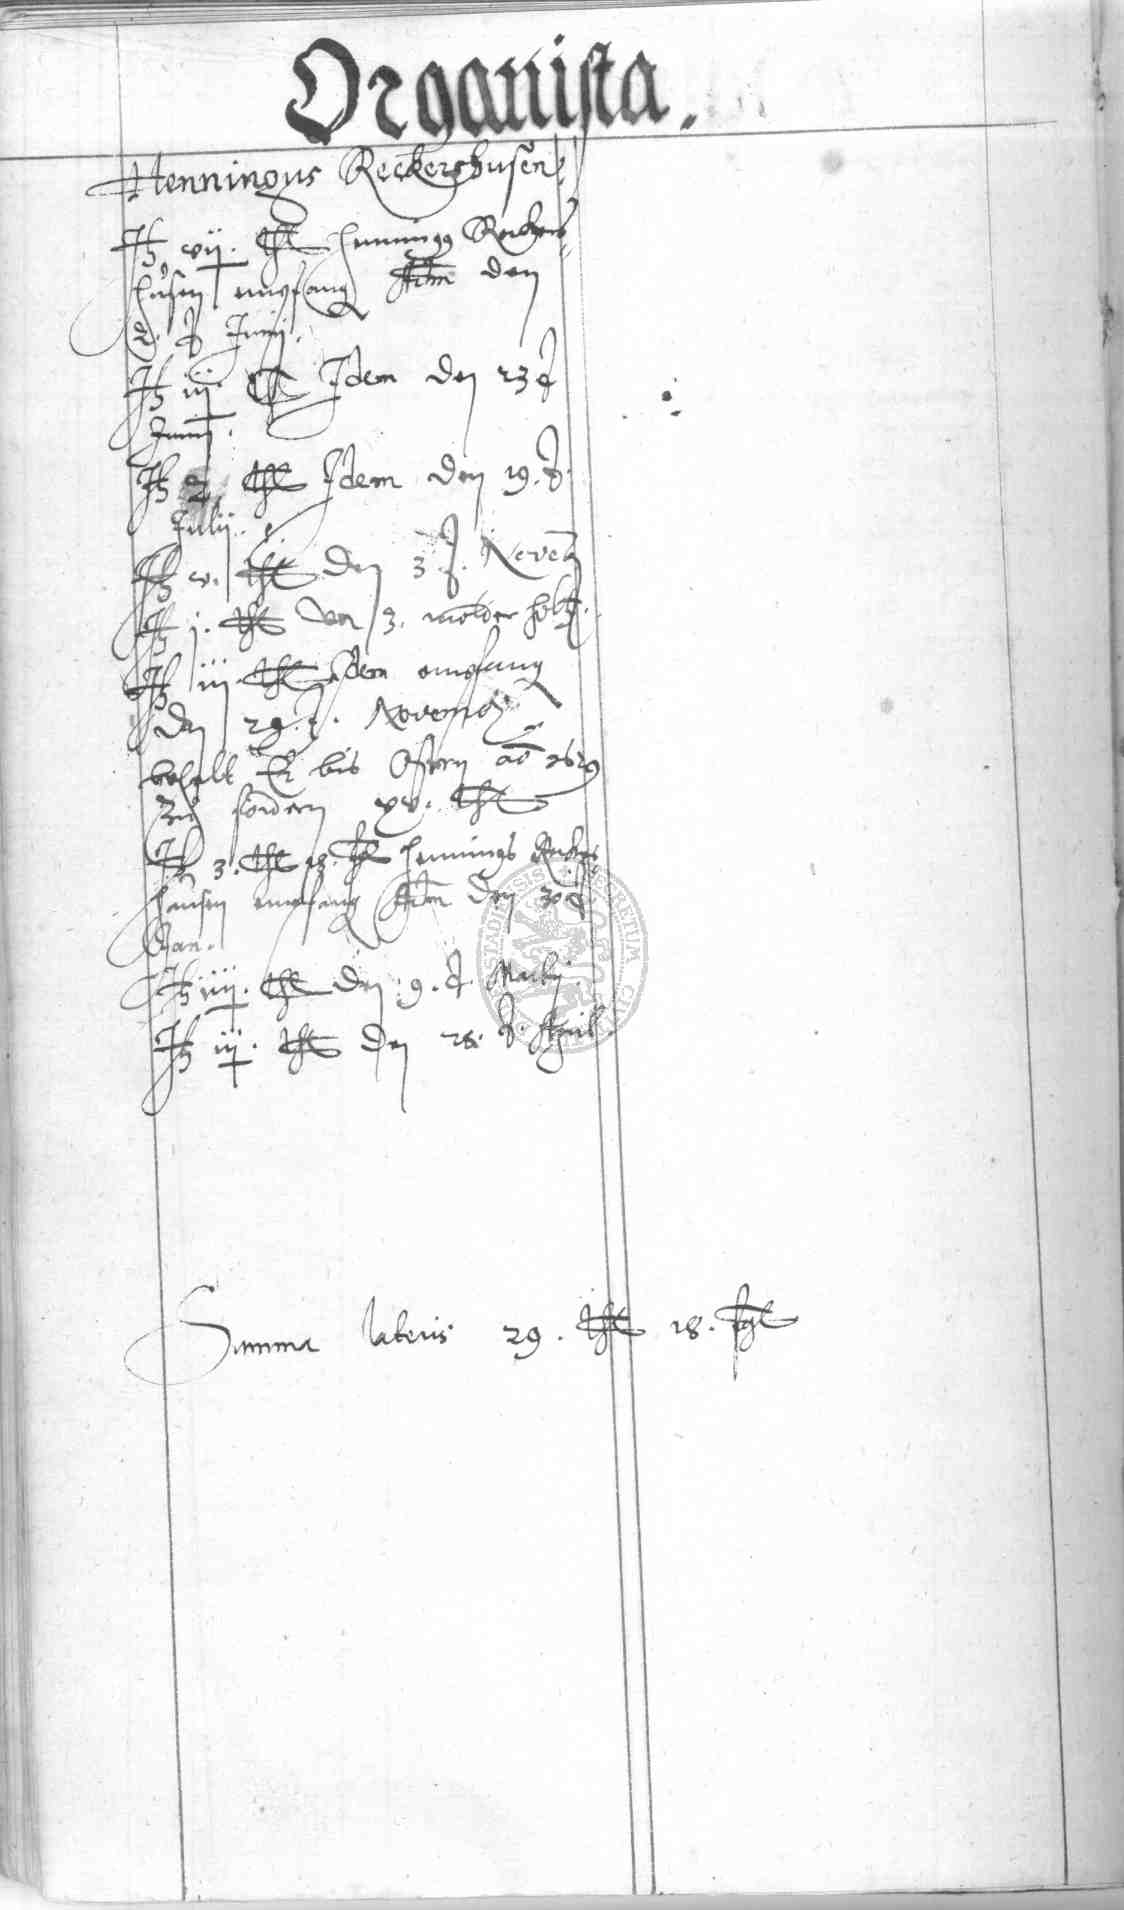 Organista.
Henningus Reckershusen
It vij. thl Hennings Reckers
husen empfang Adm den
2. d Junij.
It iij. thl Idem den 23 d
Junij.
It 2 thl Idem den 19. d.
Julij.
It v. thl den 3. d. Novemb
It j. thl von 3. molder holtz.
It iij. thl Idem empfang
den 29. d. Novemb
behelt Er bis Ostern aō 1629
Zu fordern xv. thl
It 3. thl 18. fgl Hennings Reckers
hausen empfang Adm den 30 d.
Jan.
It iiij. thl den 9. d. Martij.
It iij. thl den 28. d. April.
Summa lateris 29. thl 18. fgl